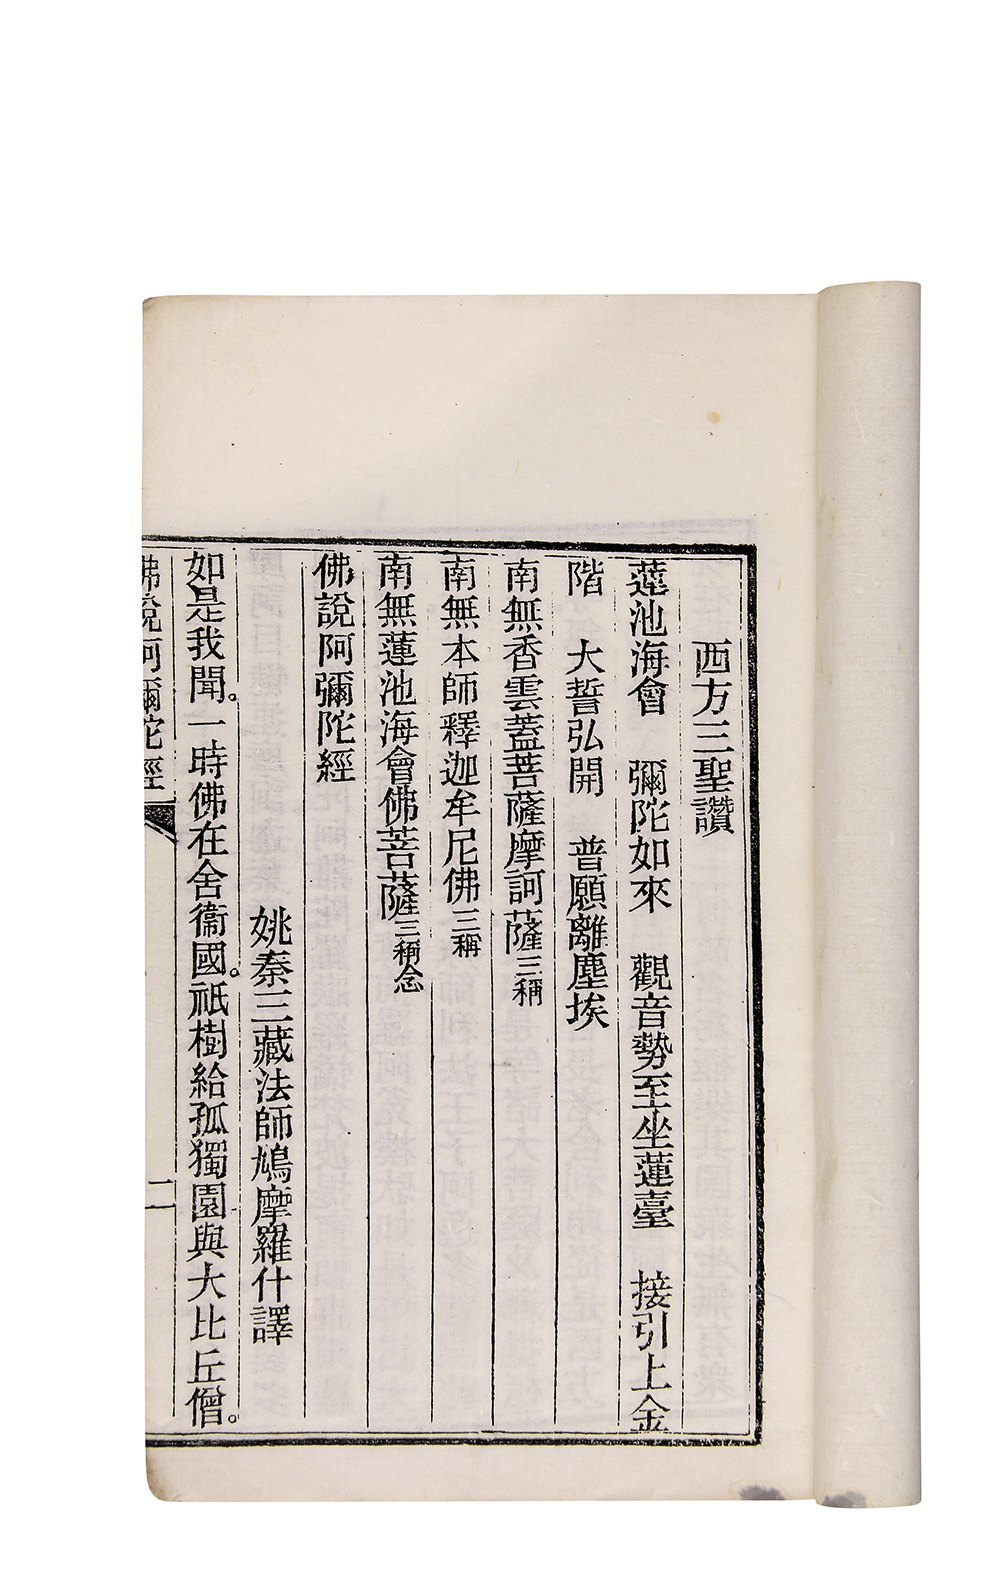 西方三聖讚
蓮池海會　彌陀如來　觀音勢至坐蓮臺　接引上金
階　大誓弘開　普願離塵埃
南無香雲蓋菩薩摩訶薩三稱
南無本師釋迦牟尼佛三稱
南無蓮池海會佛菩薩三稱念
佛說阿彌陀經
姚秦三藏法師鳩摩羅什譯
如是我聞。一時佛在舍衞國。祇樹給孤獨園與大比丘僧。
佛說阿彌陀經
二